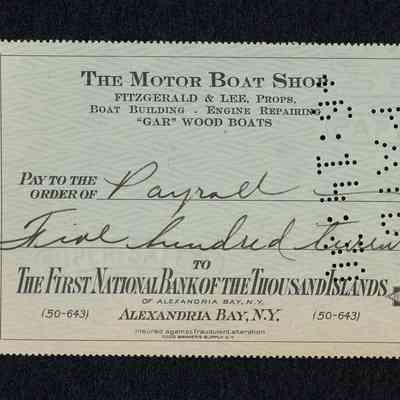 THE MOTOR BOAT SHOP
FITZGERALD & LEE, PROPS.
BOAT BUILDING - ENGINE REPAIRING
"GAR" WOOD BOATS
PAY TO THE
ORDER OF Payroll
Five hundred
TO
THE FIRST NATIONAL BANK OF THE THOUSAND ISLANDS
OF ALEXANDRIA BAY, N.Y.
(50-643) ALEXANDRIA BAY, N.Y. (50-643)
insured against fraudulent alteration